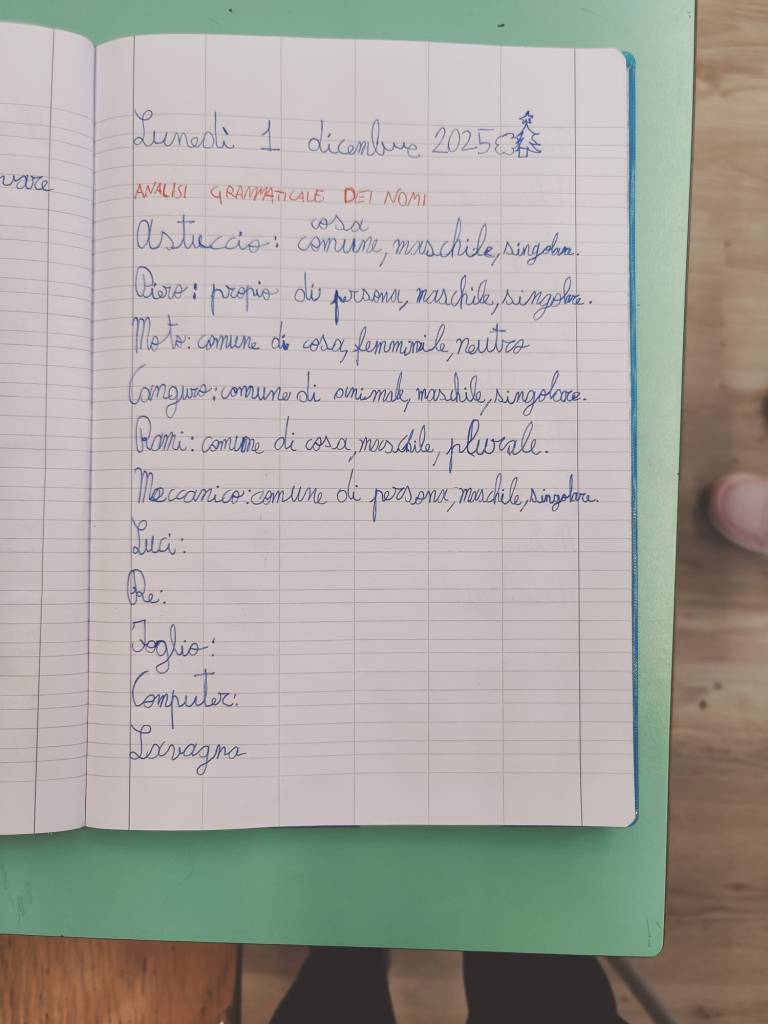 vare
Lunedì 1 dicembre 2025
ANALISI GRAMMATICALE DEI NOMI
cosa
Astuccio: comune, maschile, singolare.
Piero: propio di persona, maschile, singolare.
Moto: comune di cosa, femminile, neutro
Canguro: comune di animale, maschile, singolare.
Rami: comune di cosa, maschile, plurale.
Meccanico: comune di persona, maschile, singolare.
Luci:
Re:
Foglio:
Computer:
Lavagna